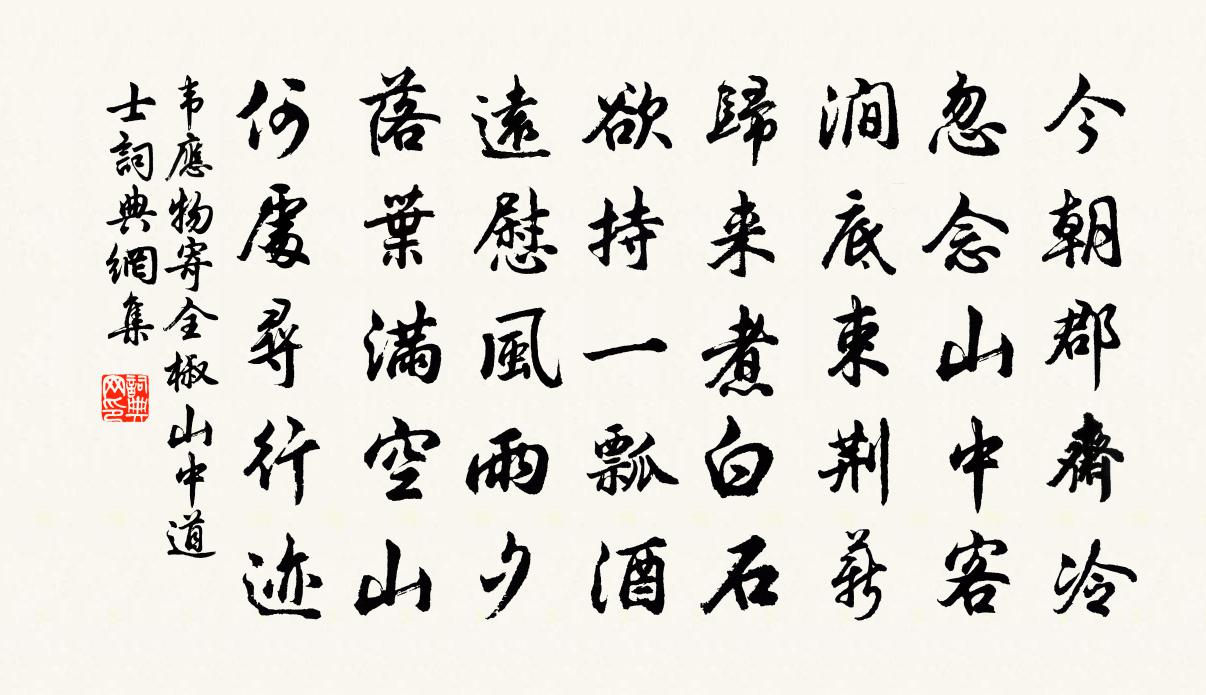 今朝郡齋冷
忽念山中客
澗底束荆薪
歸来煮白石
欲持一瓢酒
遠慰風雨夕
落葉滿空山
何處尋行迹
韦應物寄全椒山中道
士詞典網集
詞典
网印